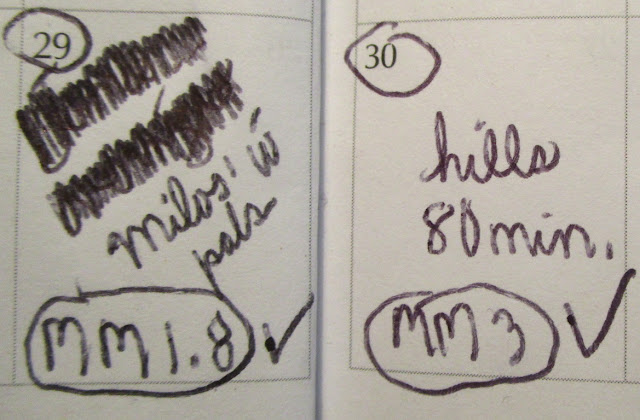 29
milos' w
pals
MM 1.8 ✓
30
hills
80 min.
MM 3 ✓